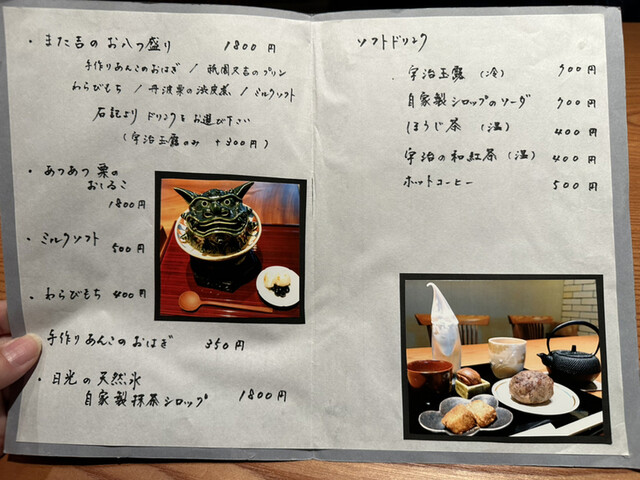 ・また吉のお八つ盛り 1800円
手作りあんこのおはぎ / 祇園又吉のプリン
わらびもち / 丹波栗の渋皮煮 / ミルクソフト
右記より ドリンクを お選び下さい
(宇治玉露のみ +300円)
・あつあつ 栗の
おしるこ
1800円
・ミルクソフト 500円
・わらびもち 400円
手作りあんこのおはぎ 350円
・日光の天然氷
自家製抹茶シロップ 1800円
ソフトドリンク
宇治玉露 (冷) 900円
自家製シロップのソーダ 900円
ほうじ茶 (温) 400円
宇治の和紅茶 (温) 400円
ホットコーヒー 500円